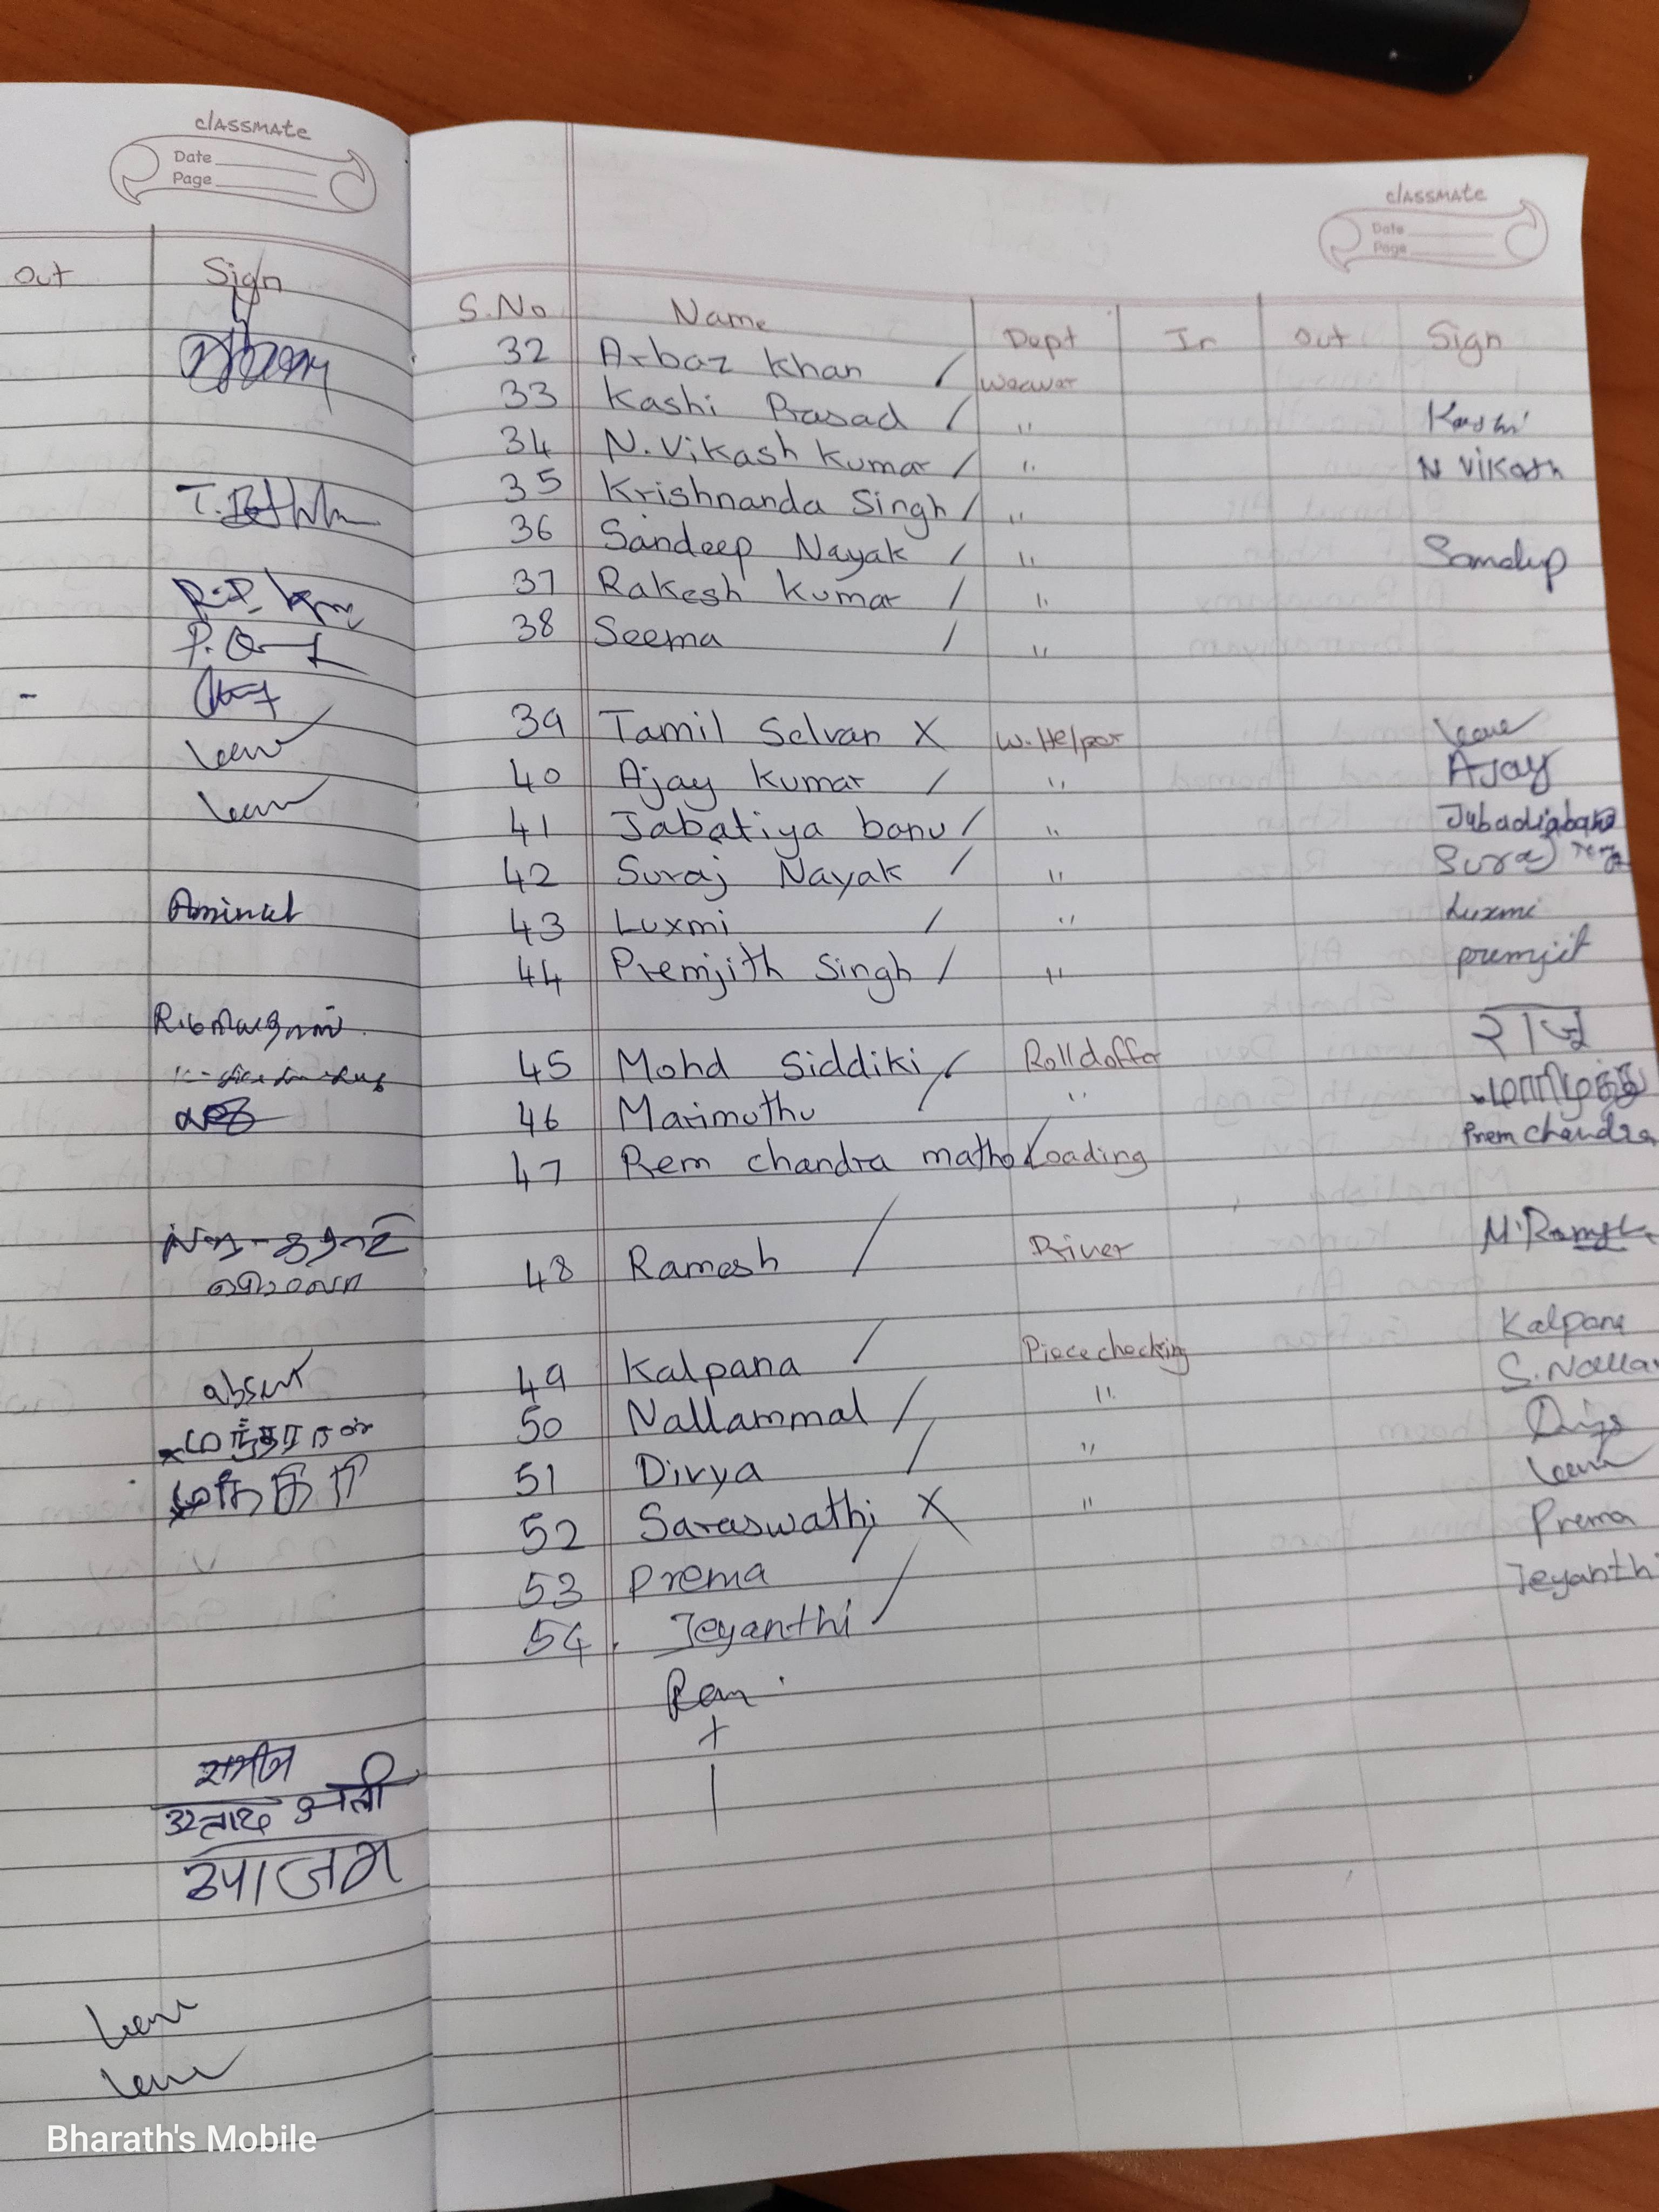 classmate
Date
Page
Out Sign
leave
leave
Aminul
absent
leave
leave
classmate
Date
Page
S.No Name Dept In Out Sign
32 Arbaz Khan / Weaver
33 Kashi Prasad / " Kashi
34 N. Vikash Kumar / " N Vikash
35 Krishnanda Singh / "
36 Sandeep Nayak / " Sandip
37 Rakesh Kumar / "
38 Seema / "
39 Tamil Selvan X W. Helper leave
40 Ajay Kumar / " Ajay
41 Jabatiya banu / " Jubadiabanu
42 Suraj Nayak / " Suraj
43 Luxmi / " Luxmi
44 Premjith Singh / " premjit
45 Mohd Siddiki / Rolldoffer राजू
46 Marimuthu / " மாரிமுத்து
47 Rem chandra matho / Loading Prem chandra
48 Ramesh / Driver M. Ramesh
49 Kalpana / Piece checking Kalpana
50 Nallammal / " S. Nalla
51 Divya / " Divya
52 Saraswathi X " leave
53 Prema / Prema
54. Jeyanthi / Jeyanthi
Ram
+
|
Bharath's Mobile